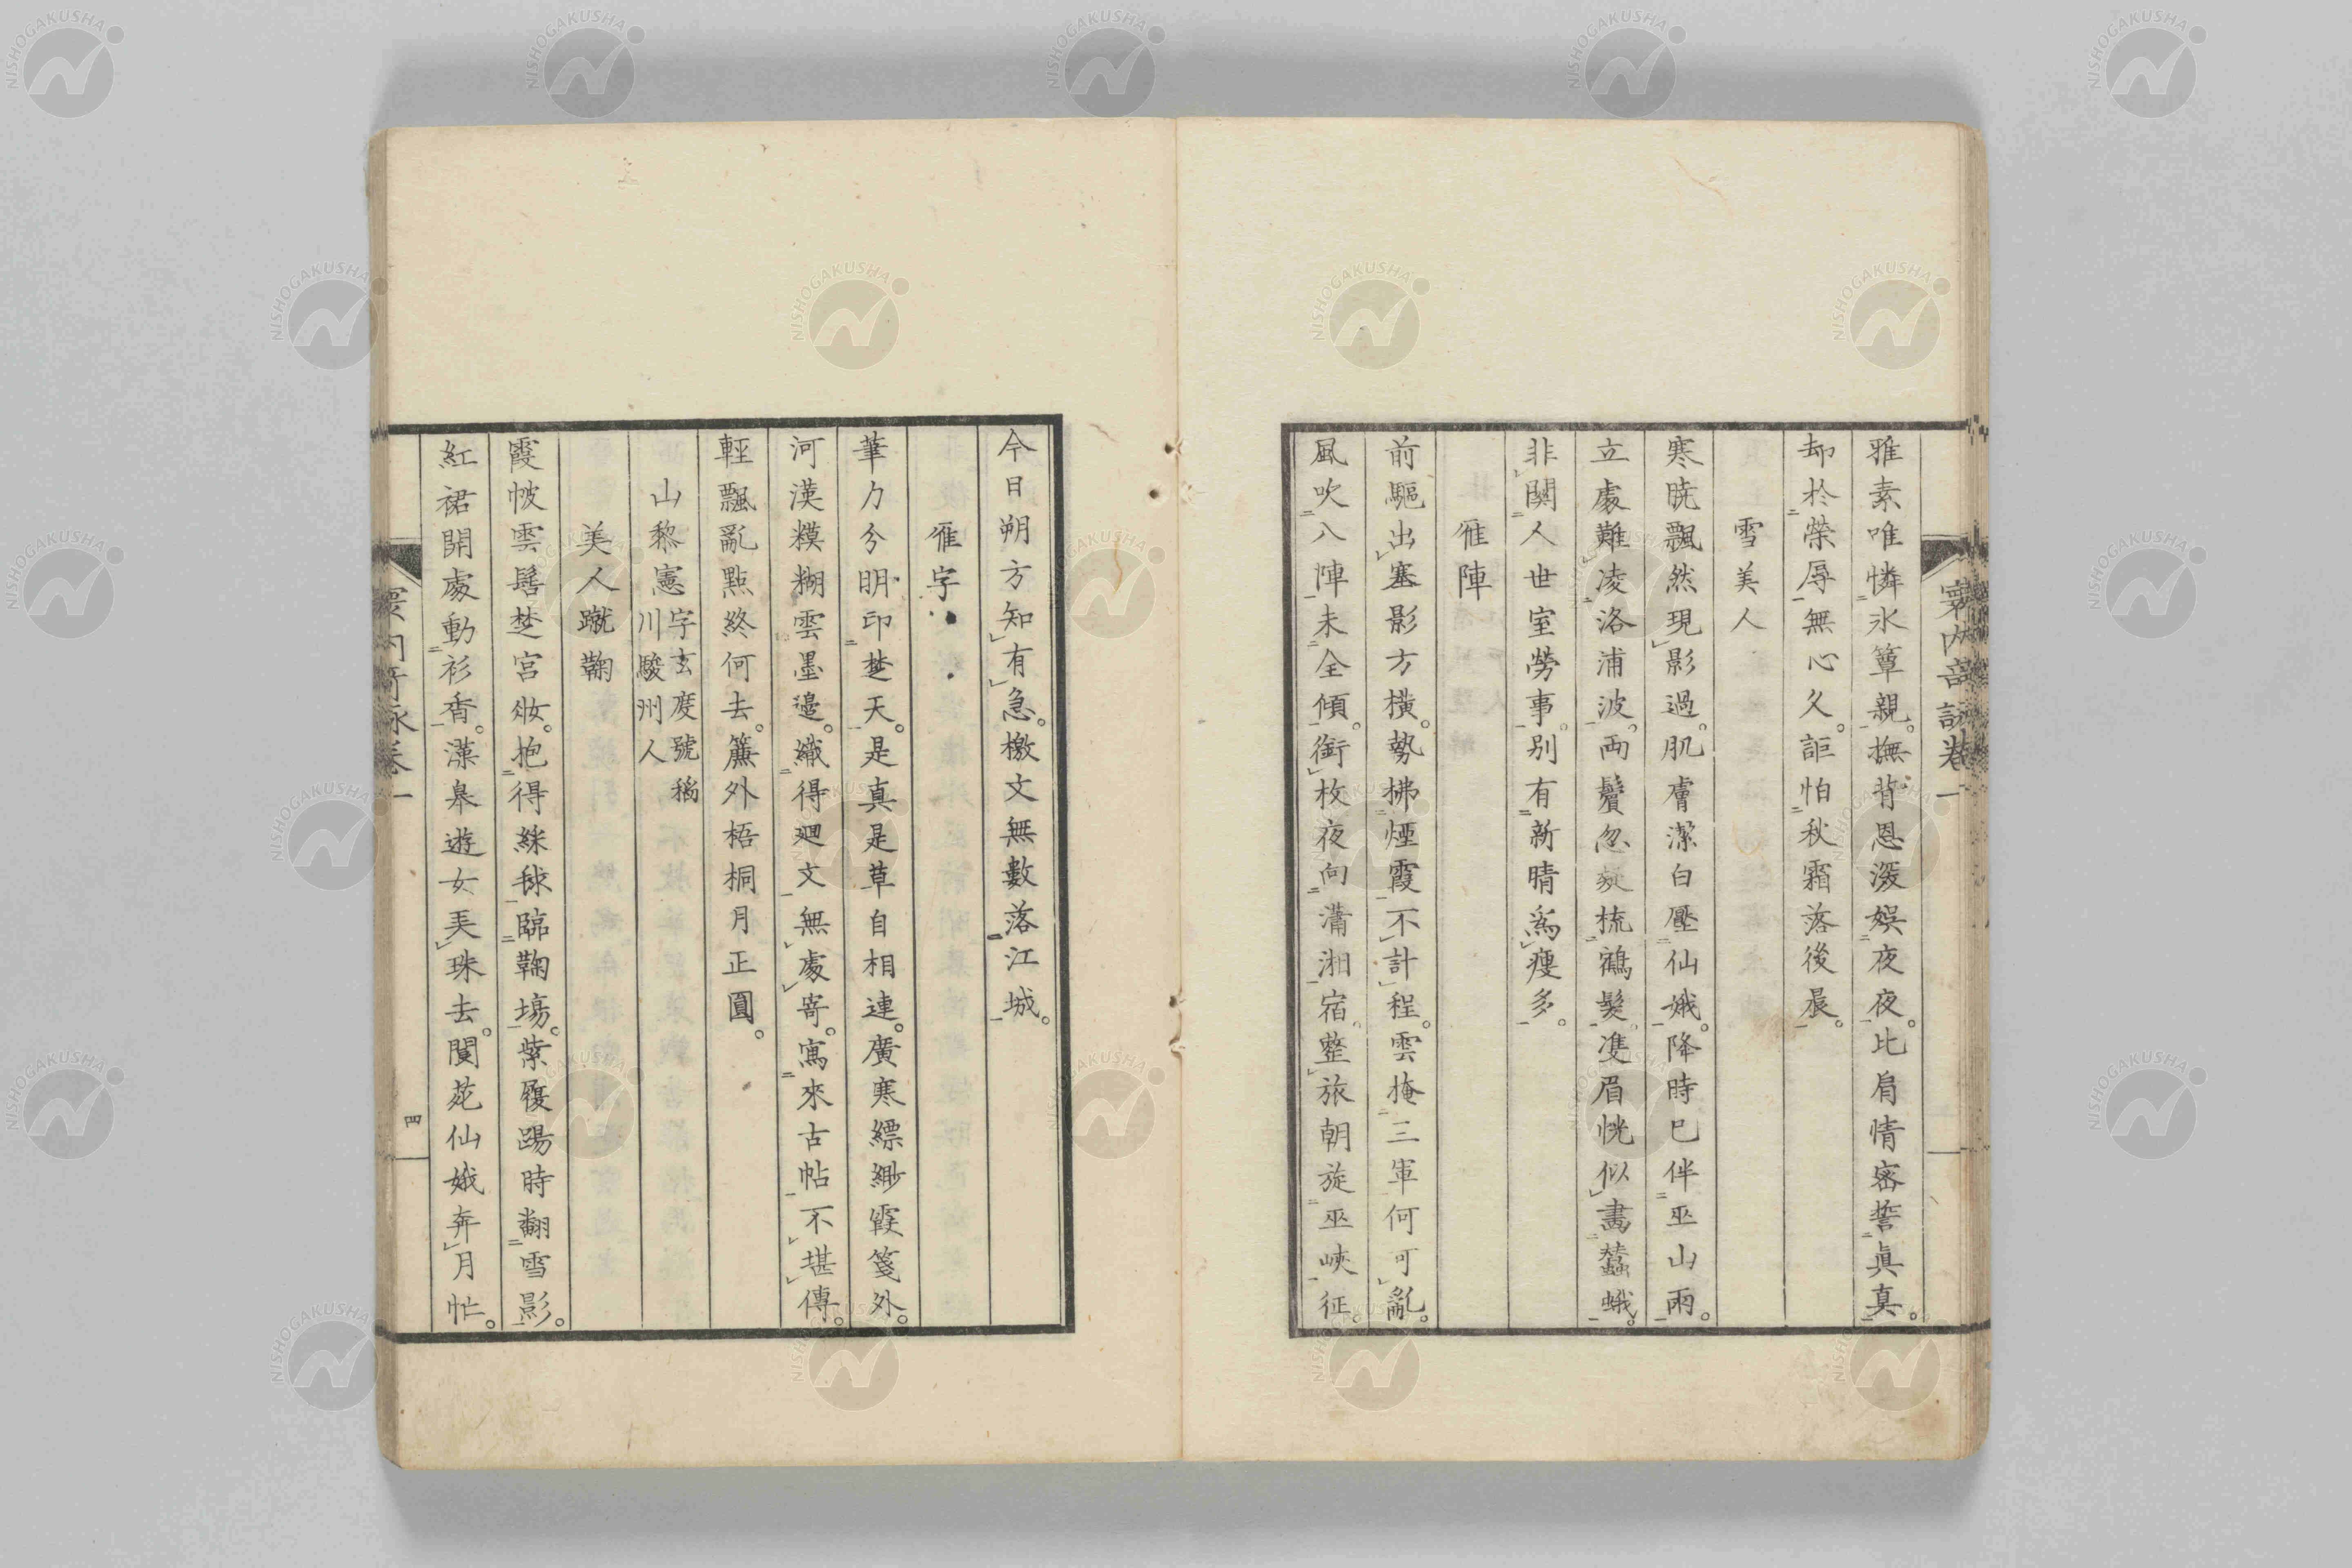 雅素唯憐氷簟親。撫背恩深娯夜夜。比肩情密誓眞真。
却於榮辱無心久。詎怕秋霜落後晨。
雪美人
寒暁飄然現影過。肌膚潔白壓仙娥。降時已伴巫山雨。
立處難凌洛浦波。両鬢忽疑梳鶴髪。雙眉恍似畵蠶蛾。
非關人世室勞事。別有新晴為瘦多。
雁陣
前驅出塞影方横。勢拂煙霞不計程。雲掩三軍何可亂。
風吹八陣未全傾。銜枚夜向瀟湘宿。整旅朝旋巫峽征。
今日朔方知有急。檄文無數落江城。
雁字
筆力分明印楚天。是真是草自相連。廣寒縹緲霞箋外。
河漢糢糊雲墨邉。織得廻文無處寄。寫來古帖不堪傳。
輕飄亂點終何去。簾外梧桐月正圓。
山黎憲字玄度號稲川駿州人
美人蹴鞠
霞帔雲髻楚宮妝。抱得綵毬臨鞠塲。紫履踢時翻雪影。
紅裙開處動衫香。漢皐遊女弄珠去。閬苑仙娥奔月忙。
寰内奇詠巻一
四
NISHOGAKUSHA